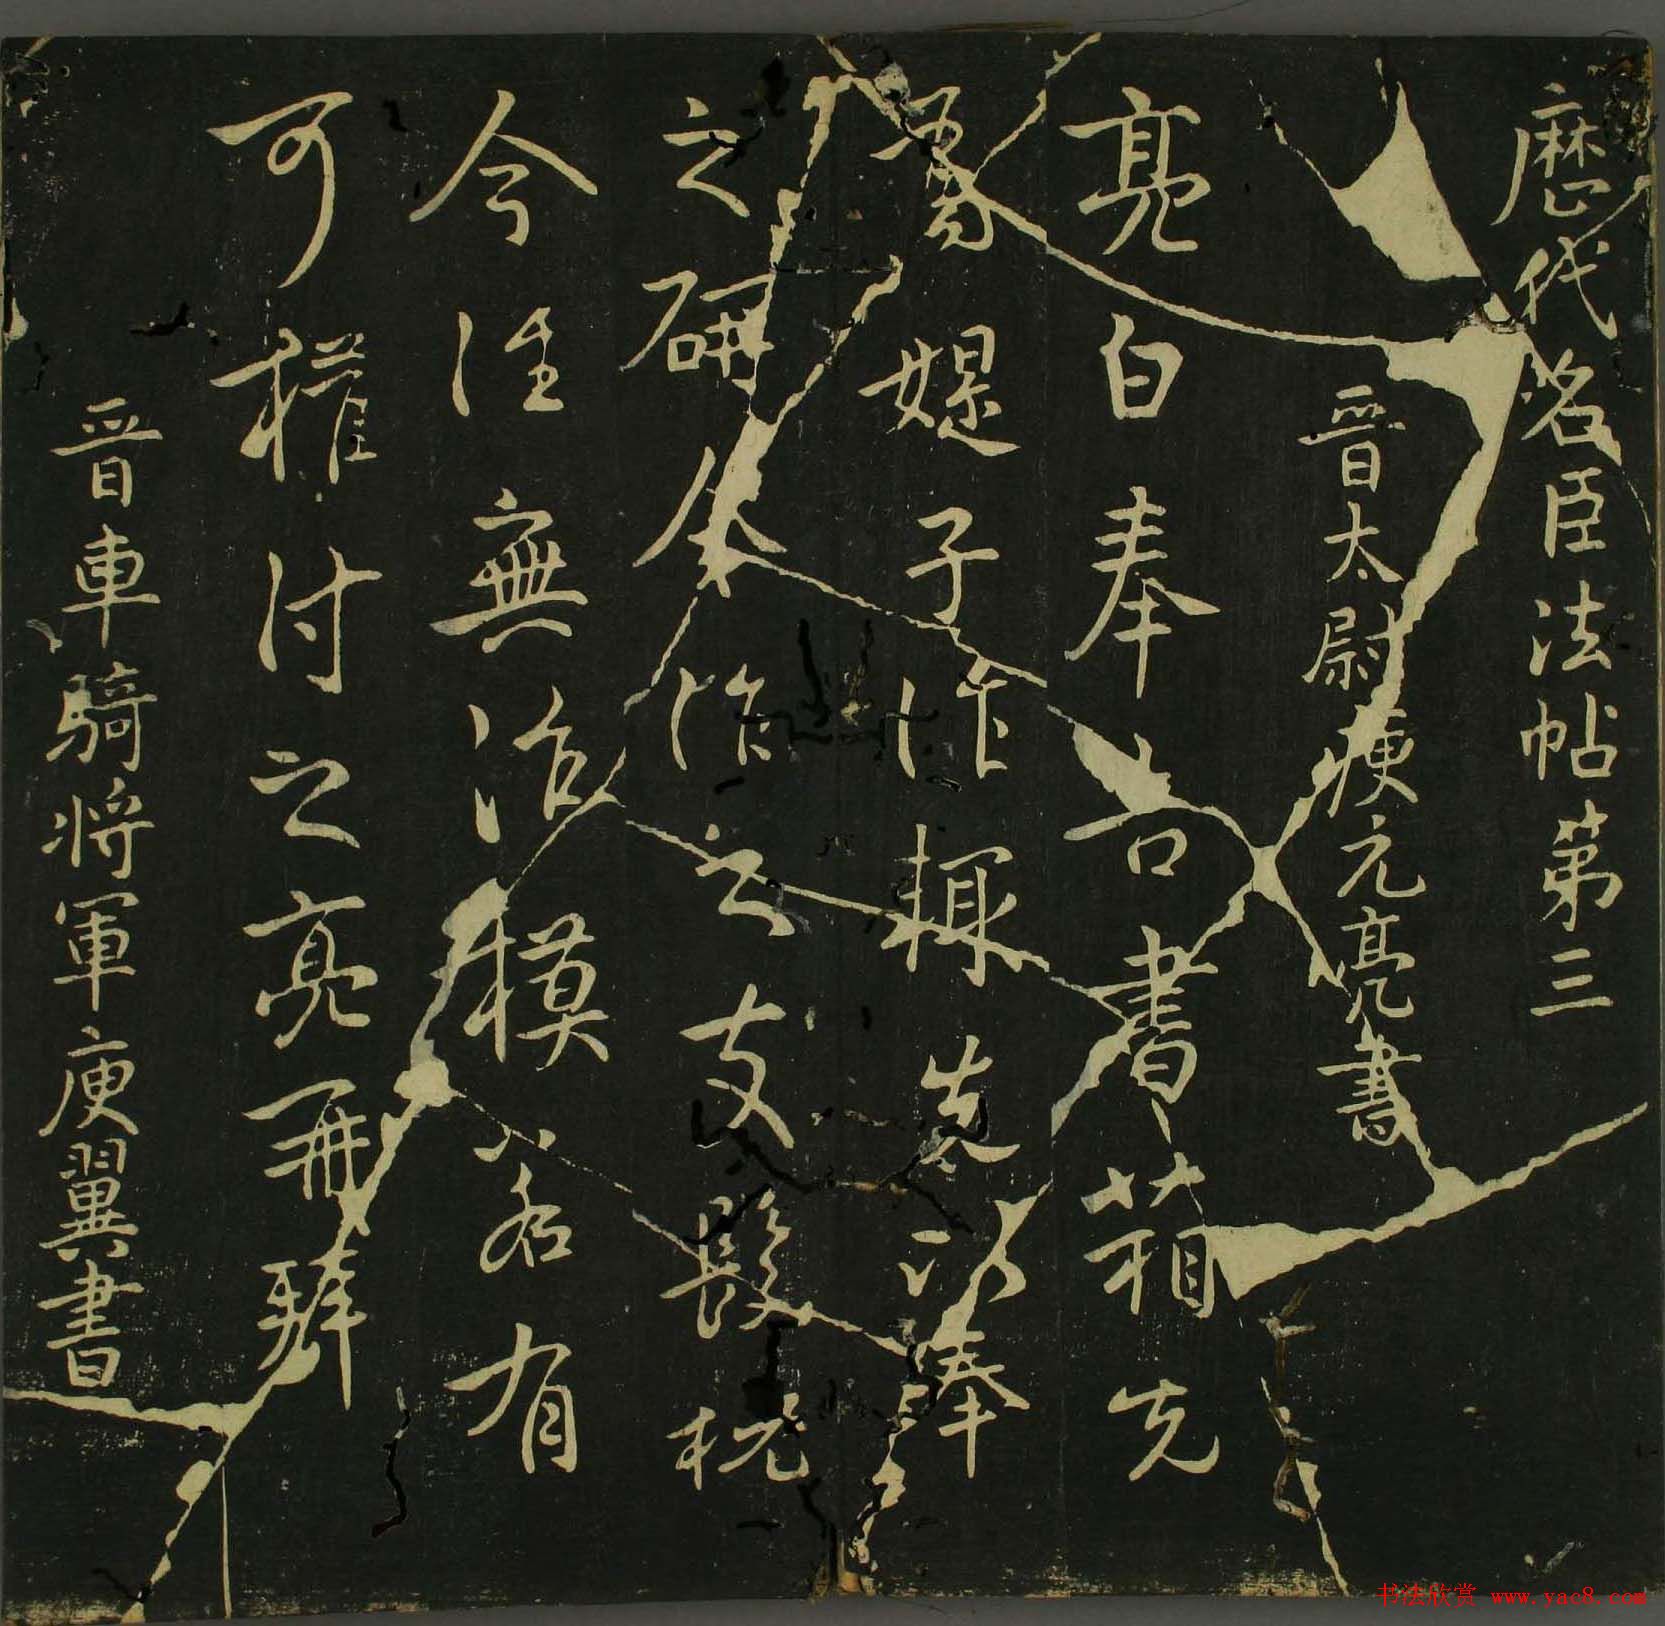 歴代名臣法帖第三
晉太尉庾元亮書
亮白奉告書箱先
媞子作輙先以奉
之研作之支髮枕
今往無治模若有
可權付之亮再拜
晉車騎將軍庾翼書
书法欣赏 www.yac8.com